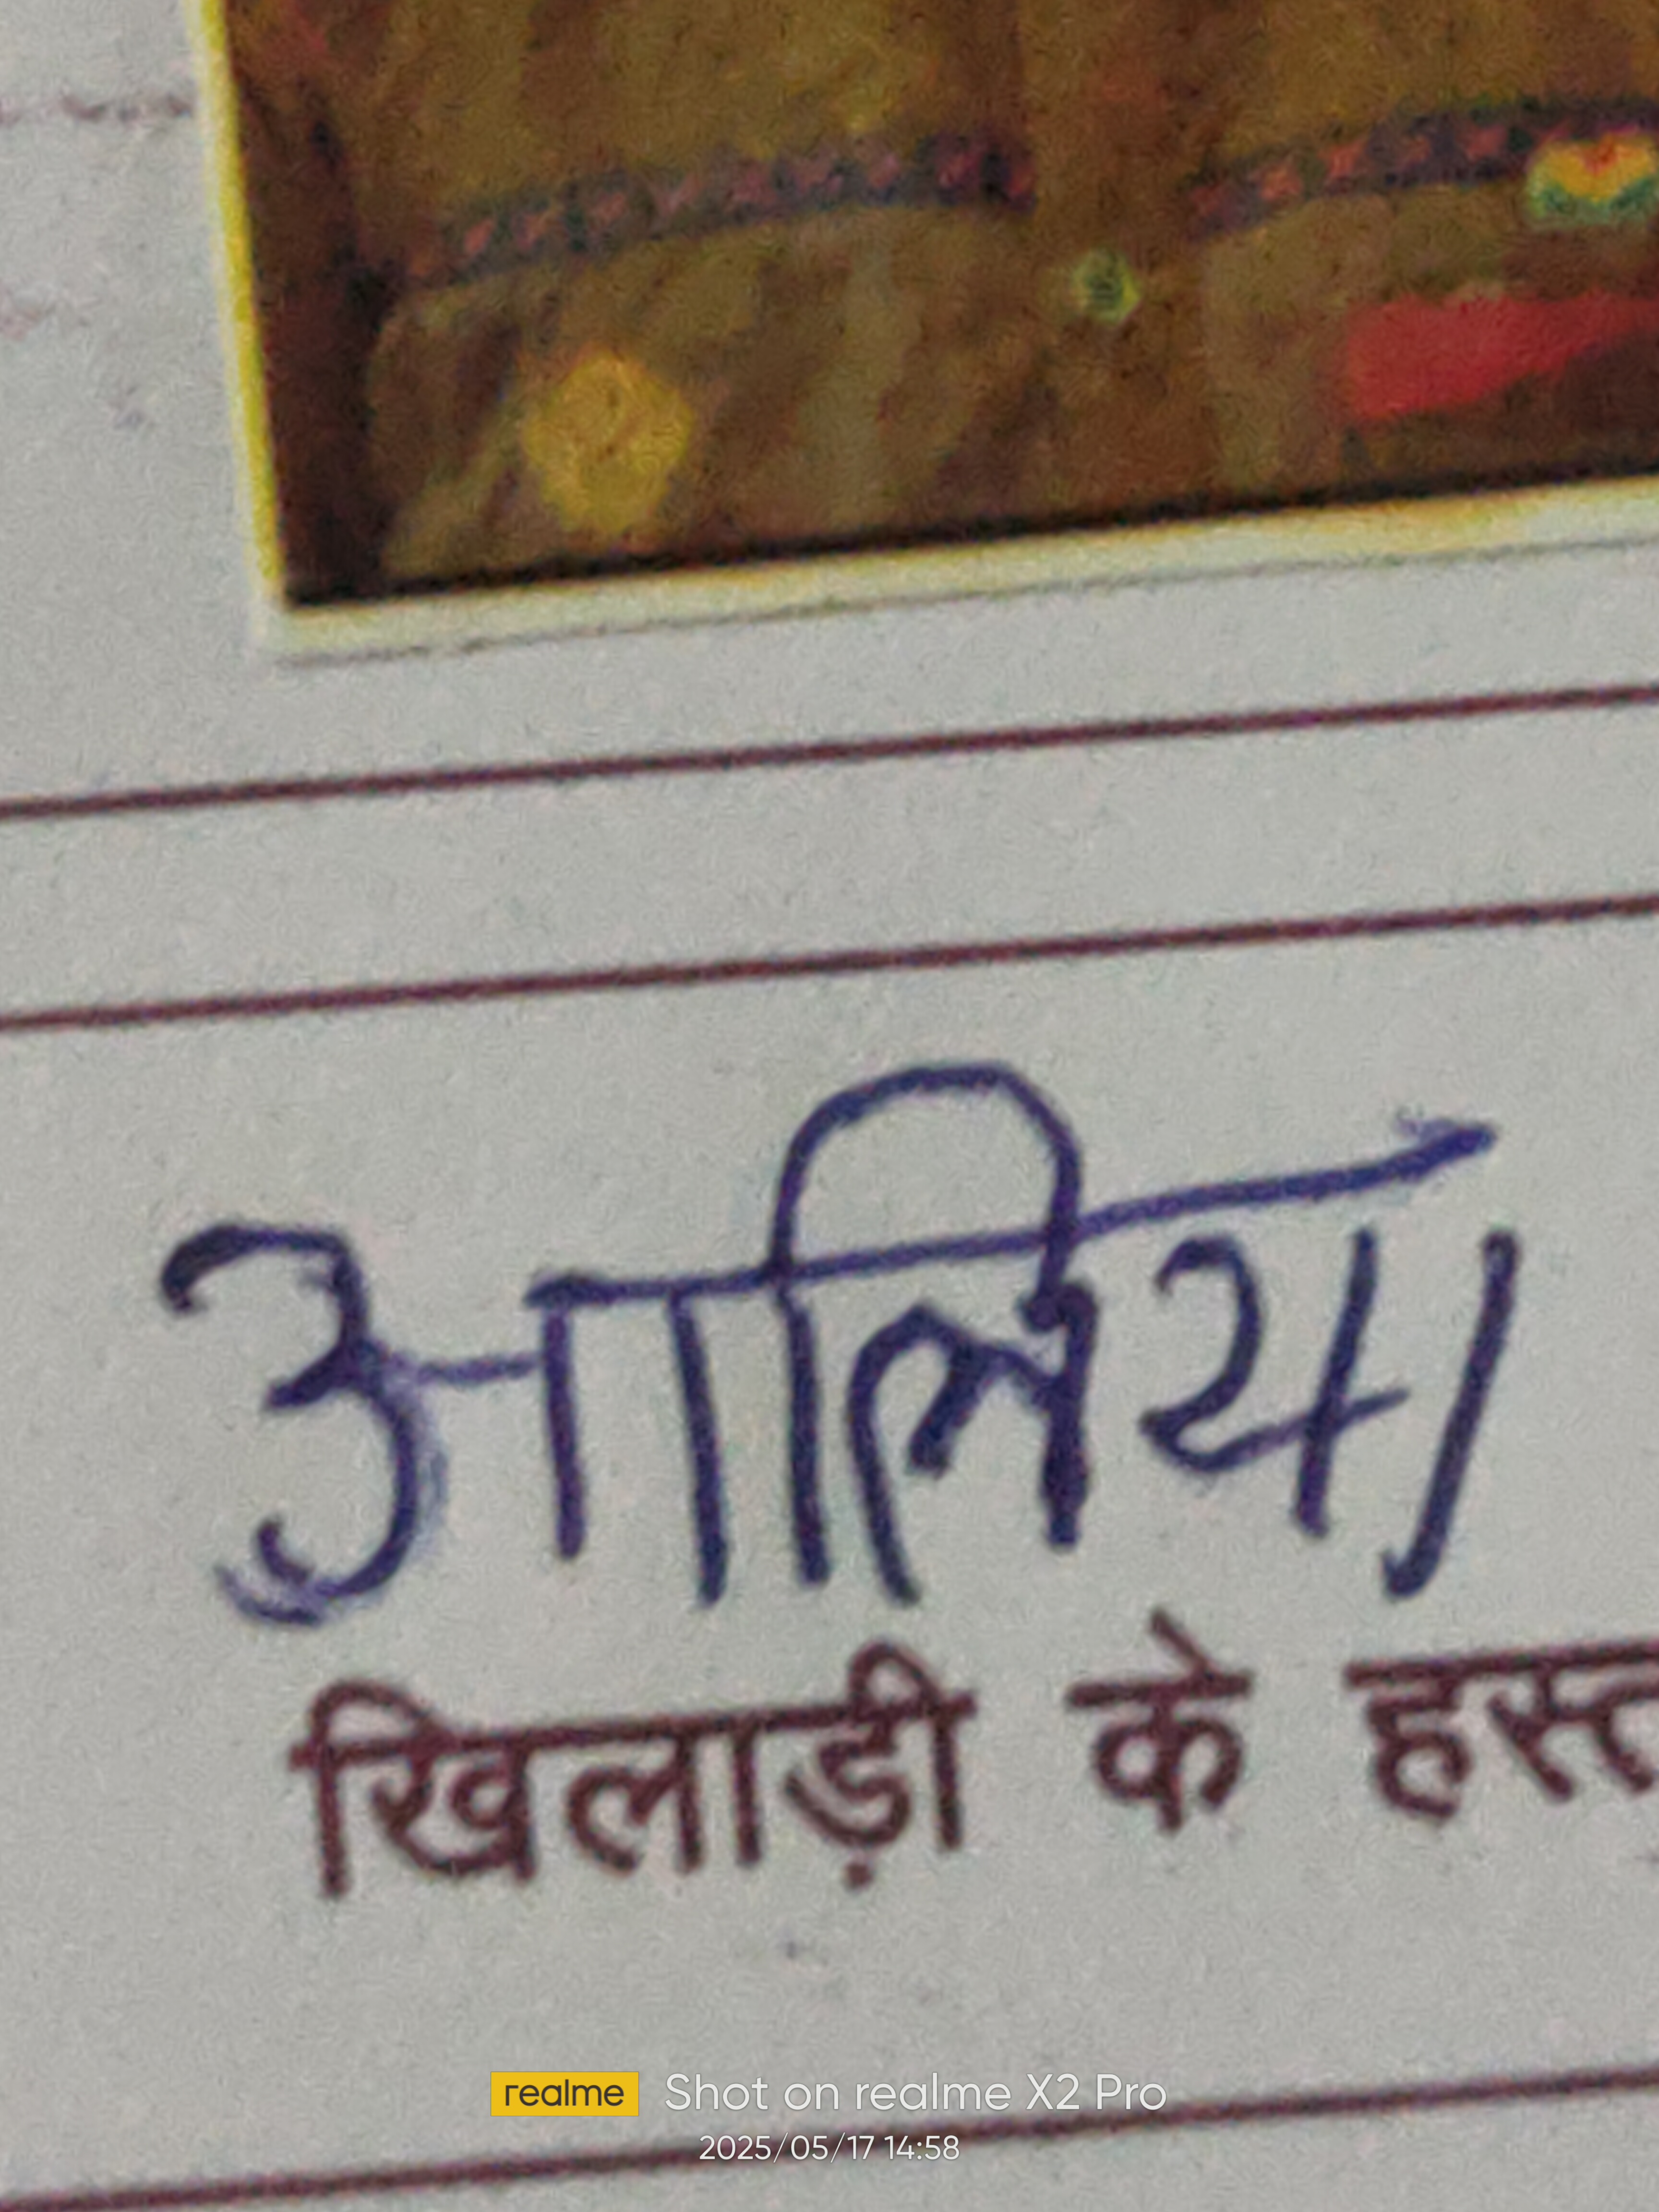 आलिया
खिलाड़ी के
realme Shot on realme X2 Pro
2025/05/17 14:58